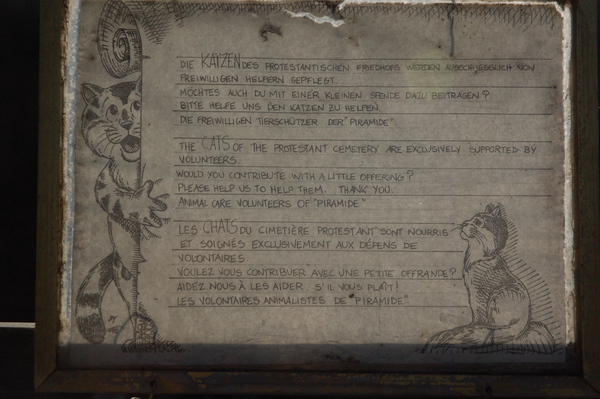 DIE KATZEN DES PROTESTANTISCHEN FRIEDHOFS WERDEN AUSSCHJESSLICH VON
FREIWILLIGEN HELFERN GEPFLEGT.
MÖCHTES AUCH DU MIT EINER KLEINEN SPENDE DAZU BEITRAGEN?
BITTE HELFE UNS DEN KATZEN ZU HELFEN.
DIE FREIWILLIGEN TIERSCHÜTZER DER "PIRAMIDE"
THE CATS OF THE PROTESTANT CEMETERY ARE EXCLUSIVELY SUPPORTED BY
VOLUNTEERS.
WOULD YOU CONTRIBUTE WITH A LITTLE OFFERING?
PLEASE HELP US TO HELP THEM. THANK YOU.
ANIMAL CARE VOLUNTEERS OF "PIRAMIDE"
LES CHATS DU CIMETIÈRE PROTESTANT SONT NOURRIS
ET SOIGNÉS EXCLUSIVEMENT AUX DÉPENS DE
VOLONTAIRES.
VOULEZ VOUS CONTRIBUER AVEC UNE PETITE OFFRANDE?
AIDEZ NOUS À LES AIDER. S'IL VOUS PLAÎT!
LES VOLONTAIRES ANIMALISTES DE "PIRAMIDE"